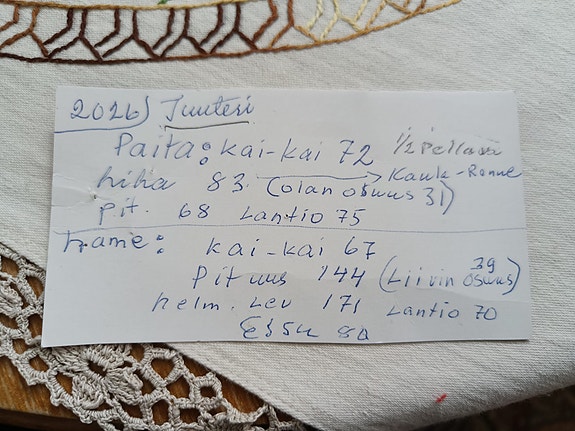 2026) Juuteri
Paita: kai-kai 72 1/2 Pellava
hiha 83 → Kaula-Ranne
(olan osuus 31)
pit. 68 Lantio 75
hame: kai-kai 67
Pituus 144 (Liivin osuus 39)
helm. Lev 171 Lantio 70